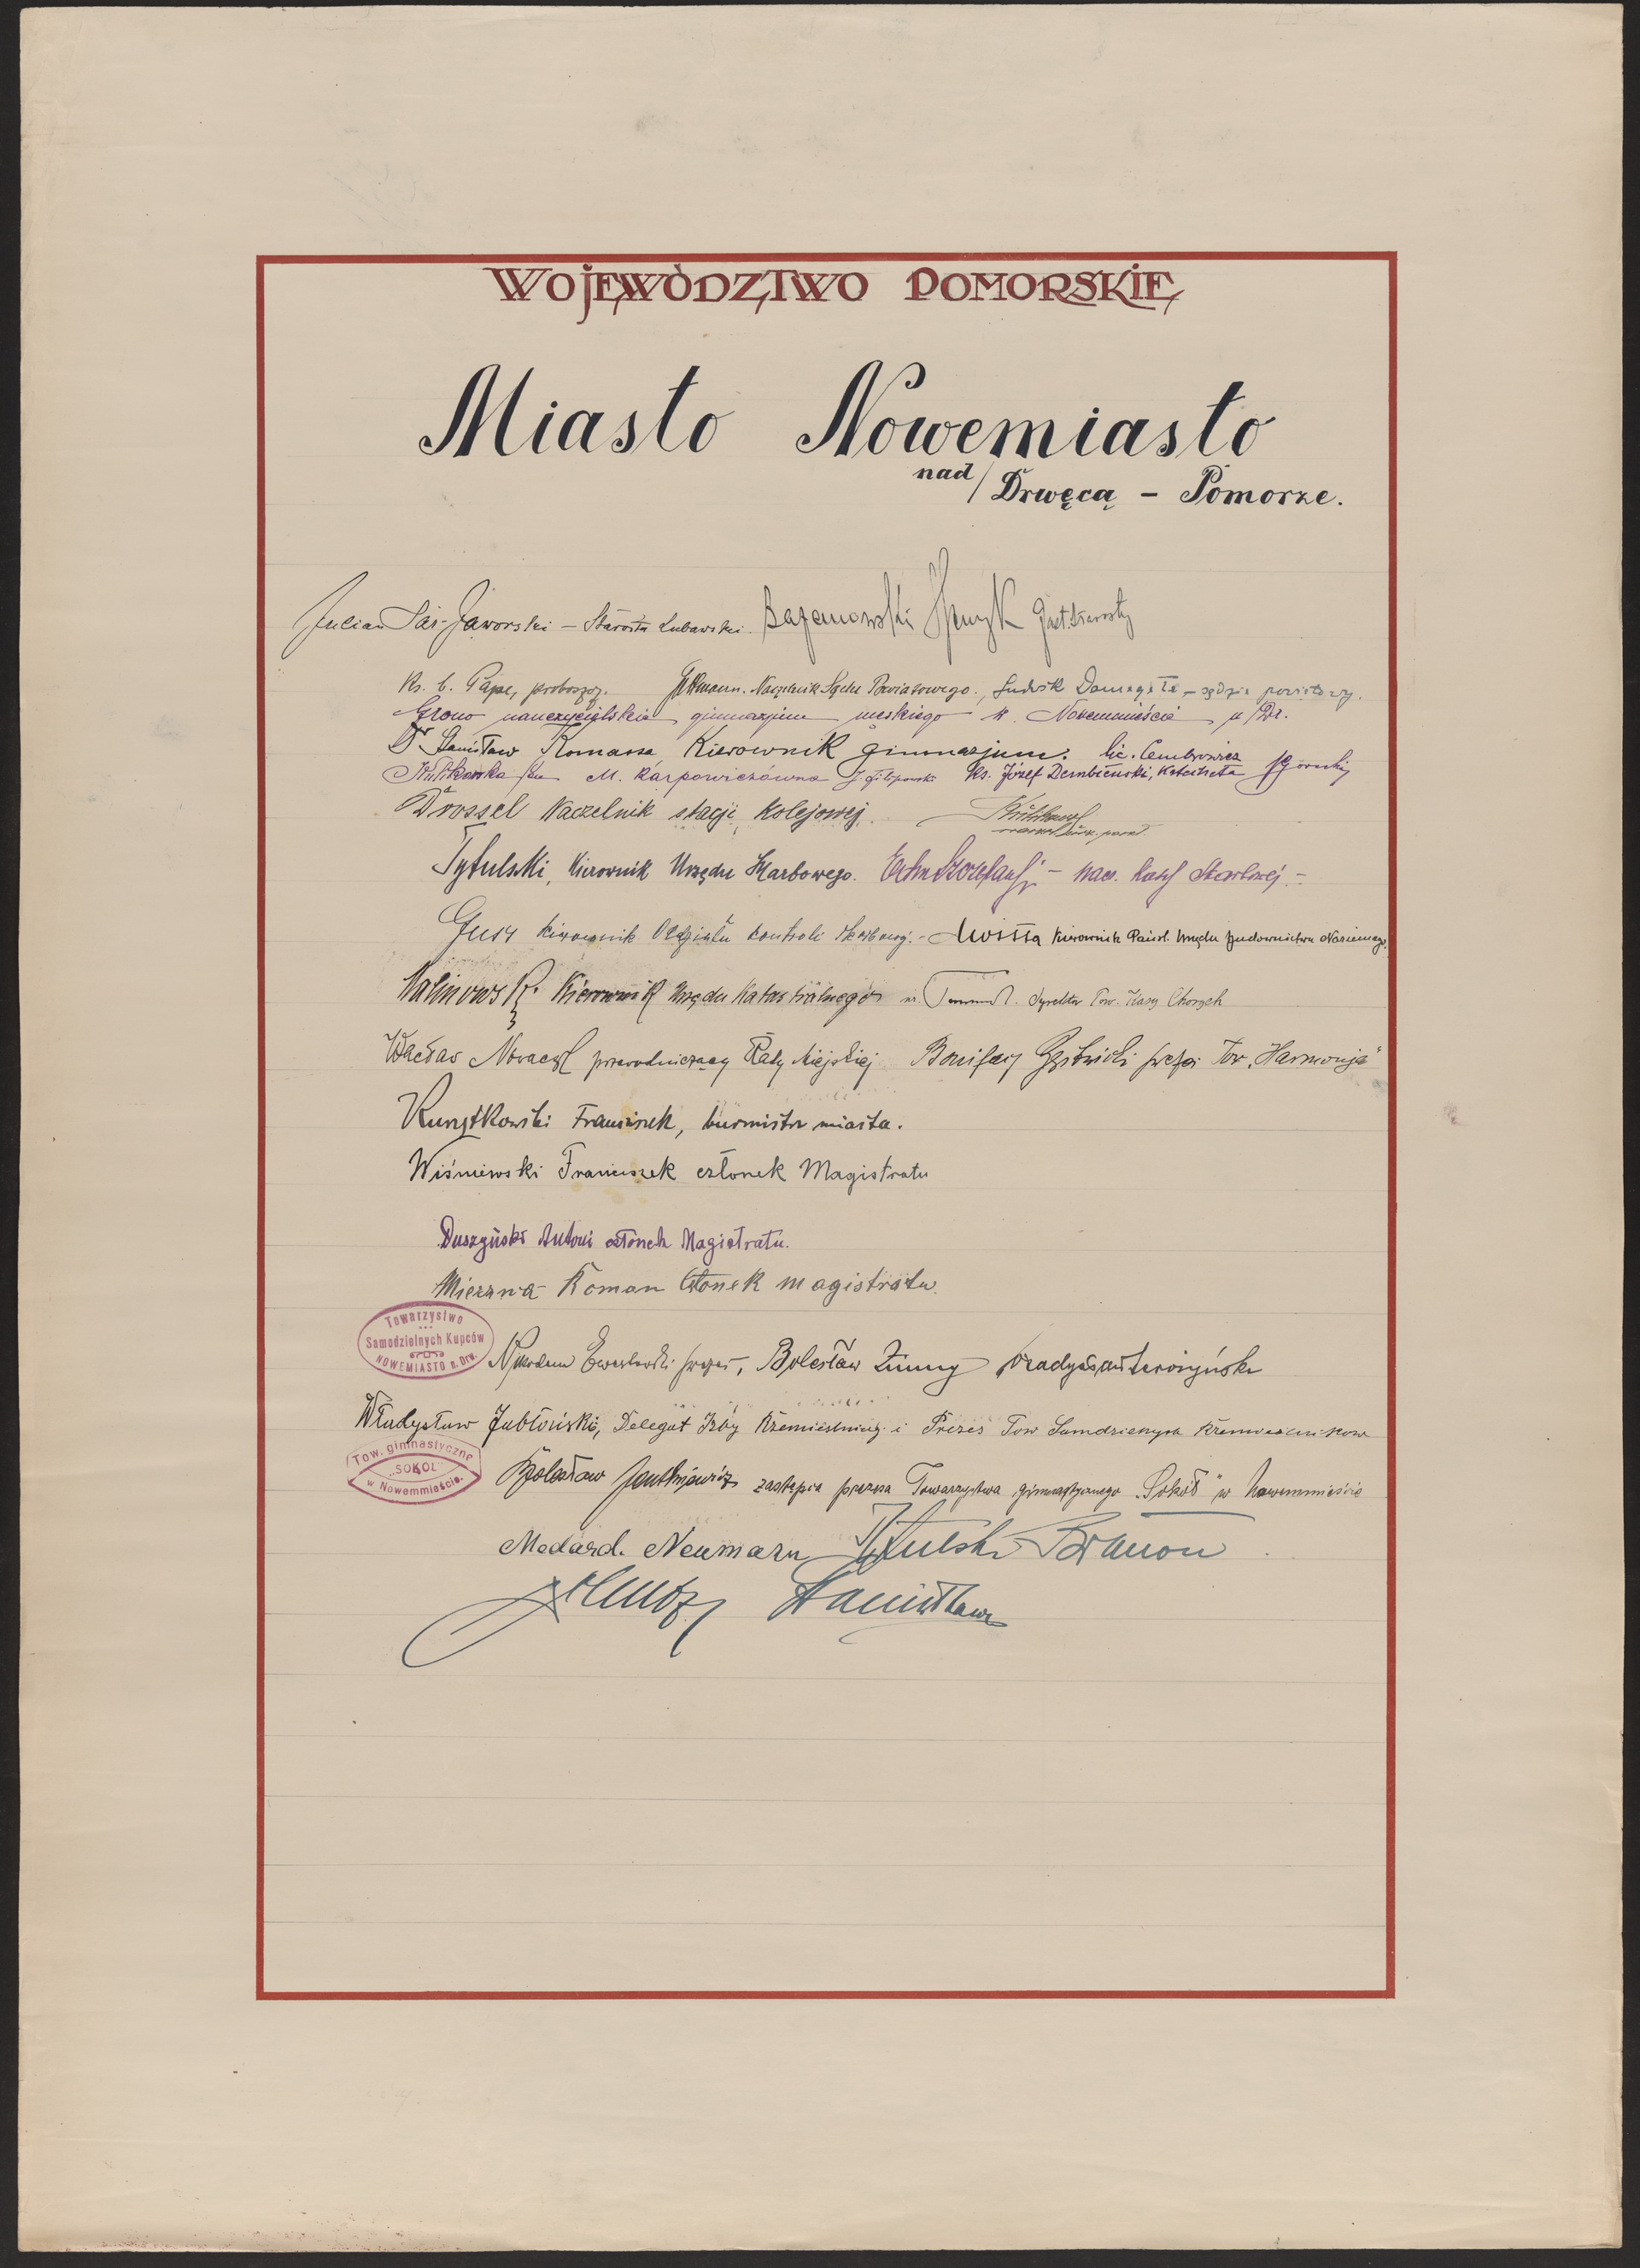 WOJEWÓDZTWO POMORSKIE
Miasto Nowemiasto
nad/Drwęcą – Pomorze.
Julian Sas-Jaworski – Starosta Lubawski.
Ks. C. Pape, proboszcz. Naczelnik Sądu Powiatowego., Ludwik – sędzia powiatowy.
Grono nauczycielskie gimnazjum męskiego w Nowemmieście n/Dr.
Dr Stanisław Komassa Kierownik gimnazjum. lic. Cembrowicz
M. Karpowiczówna J. Filipowski Ks. Józef Dembieński, Katecheta
Drossel Naczelnik stacji kolejowej.
Tytulski, Kierownik Urzędu Skarbowego. – nacz. Kasy Skarbowej –
Gusy kierownik Oddziału kontroli Skarbowej. – Kierownik Państ. Urzędu Budownictwa Naziemnego.
Malinowski Kierownik Urzędu Katastralnego Dyrektor Pow. Kasy Chorych
Wacław przewodniczący Rady Miejskiej Bonifacy prezes Tow. „Harmonja"
Kurzętkowski Franciszek, burmistrz miasta.
Wiśniewski Franciszek członek Magistratu
Duszyński Antoni członek Magistratu.
Mierzwa Roman Członek magistratu.
Towarzystwo
Samodzielnych Kupców
NOWEMIASTO n. Drw.
Nikodem prezes, Bolesław Zimny
Władysław Jabłoński, Delegat Izby Rzemieślniczej i Prezes Tow Samdzielnych Rzemieslnikow
Tow. gimnastyczne
„SOKÓŁ"
w Nowemmieście.
Bolesław zastępca prezesa Towarzystwa gimnastycznego „Sokół" w Nowemmieście
Medard. Neumann
Stanisław